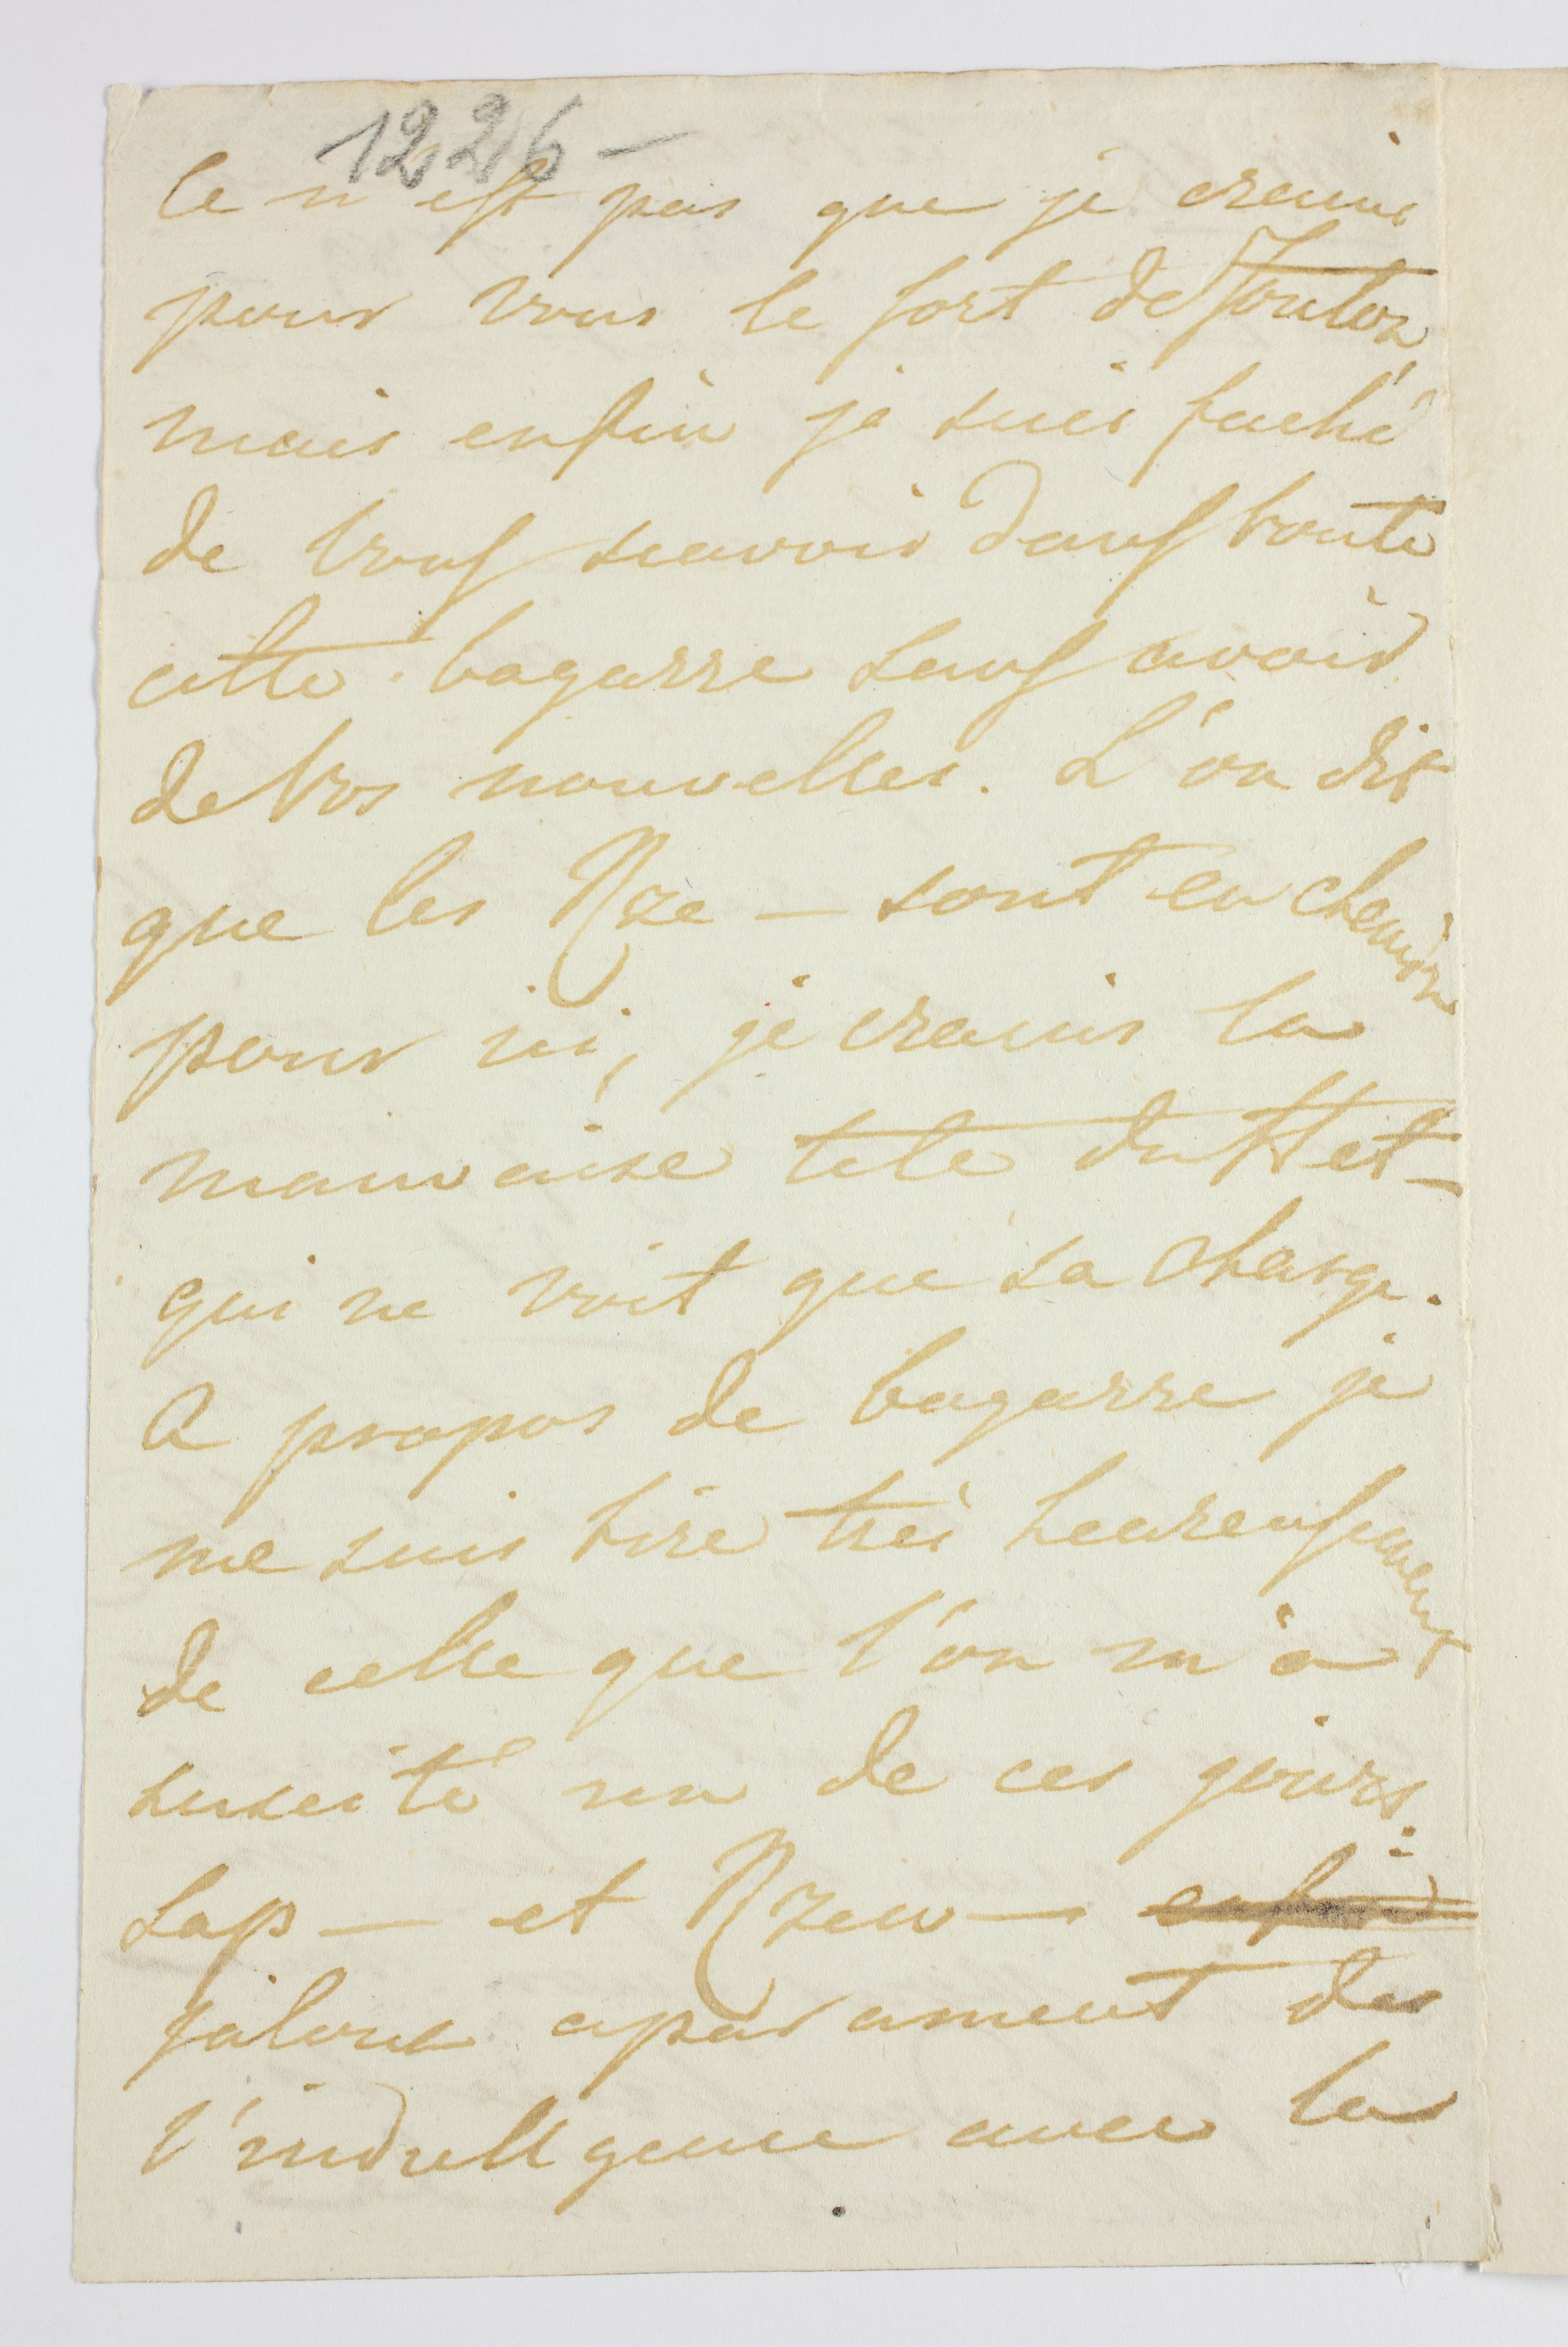 1226 —
Ce n'est pas que je crains
pour vous le sort de Toulon
mais enfin je suis faché
de vous sçavoir dans toute
cette bagarre sans avoir
de vos nouvelles. L'on dit
que les Rze — sont en chemin
pour ici, je crains la
mauvaise tete du Het —
qui ne voit que sa charge.
A propos de bagarre je
me suis tire très heureusement
de celle que l'on m'a
suscité un de ces jours:
Sap — et Rzew — enfin
jaloux aparament de
l'indullgence avec la